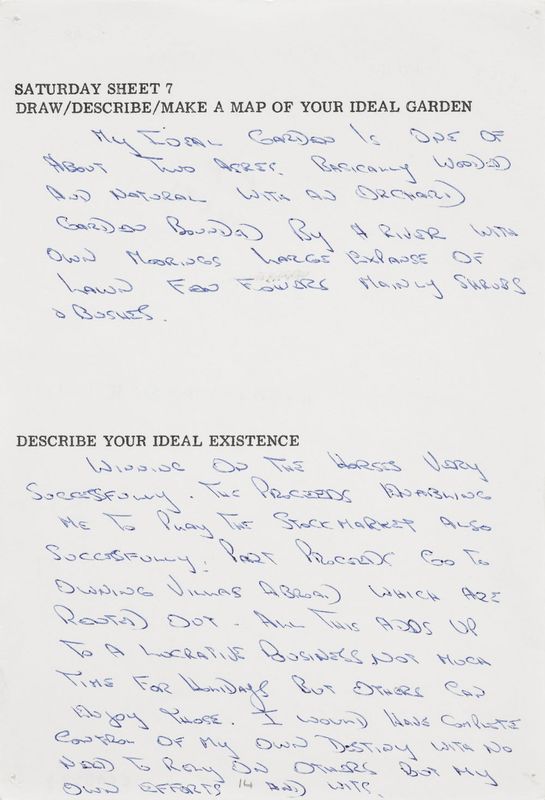 SATURDAY SHEET 7
DRAW/DESCRIBE/MAKE A MAP OF YOUR IDEAL GARDEN
MY IDEAL GARDEN IS ONE OF
ABOUT TWO ACRES. BASICALLY WOODED
AND NATURAL WITH AN ORCHARD
GARDEN BOUNDED BY A RIVER WITH
OWN MOORINGS LARGE EXPANSE OF
LAWN FEW FOWERS MAINLY SHRUBS
& BUSHES.
DESCRIBE YOUR IDEAL EXISTENCE
WINNING ON THE HORSES VERY
SUCCESSFULLY. THE PROCEEDS ENABLING
ME TO PLAY THE STOCKMARKET ALSO
SUCCESSFULLY. PART PROCEEDS GO TO
OWNING VILLAS ABROAD WHICH ARE
RENTED OUT. ALL THIS ADDS UP
TO A LUCRATIVE BUSINESS NOT MUCH
TIME FOR HOLIDAYS BUT OTHERS CAN
ENJOY THOSE. I WOULD HAVE COMPLETE
CONTROL OF MY OWN DESTINY WITH NO
NEED TO RELY ON OTHERS BUT MY
OWN EFFORTS AND WITS.
14